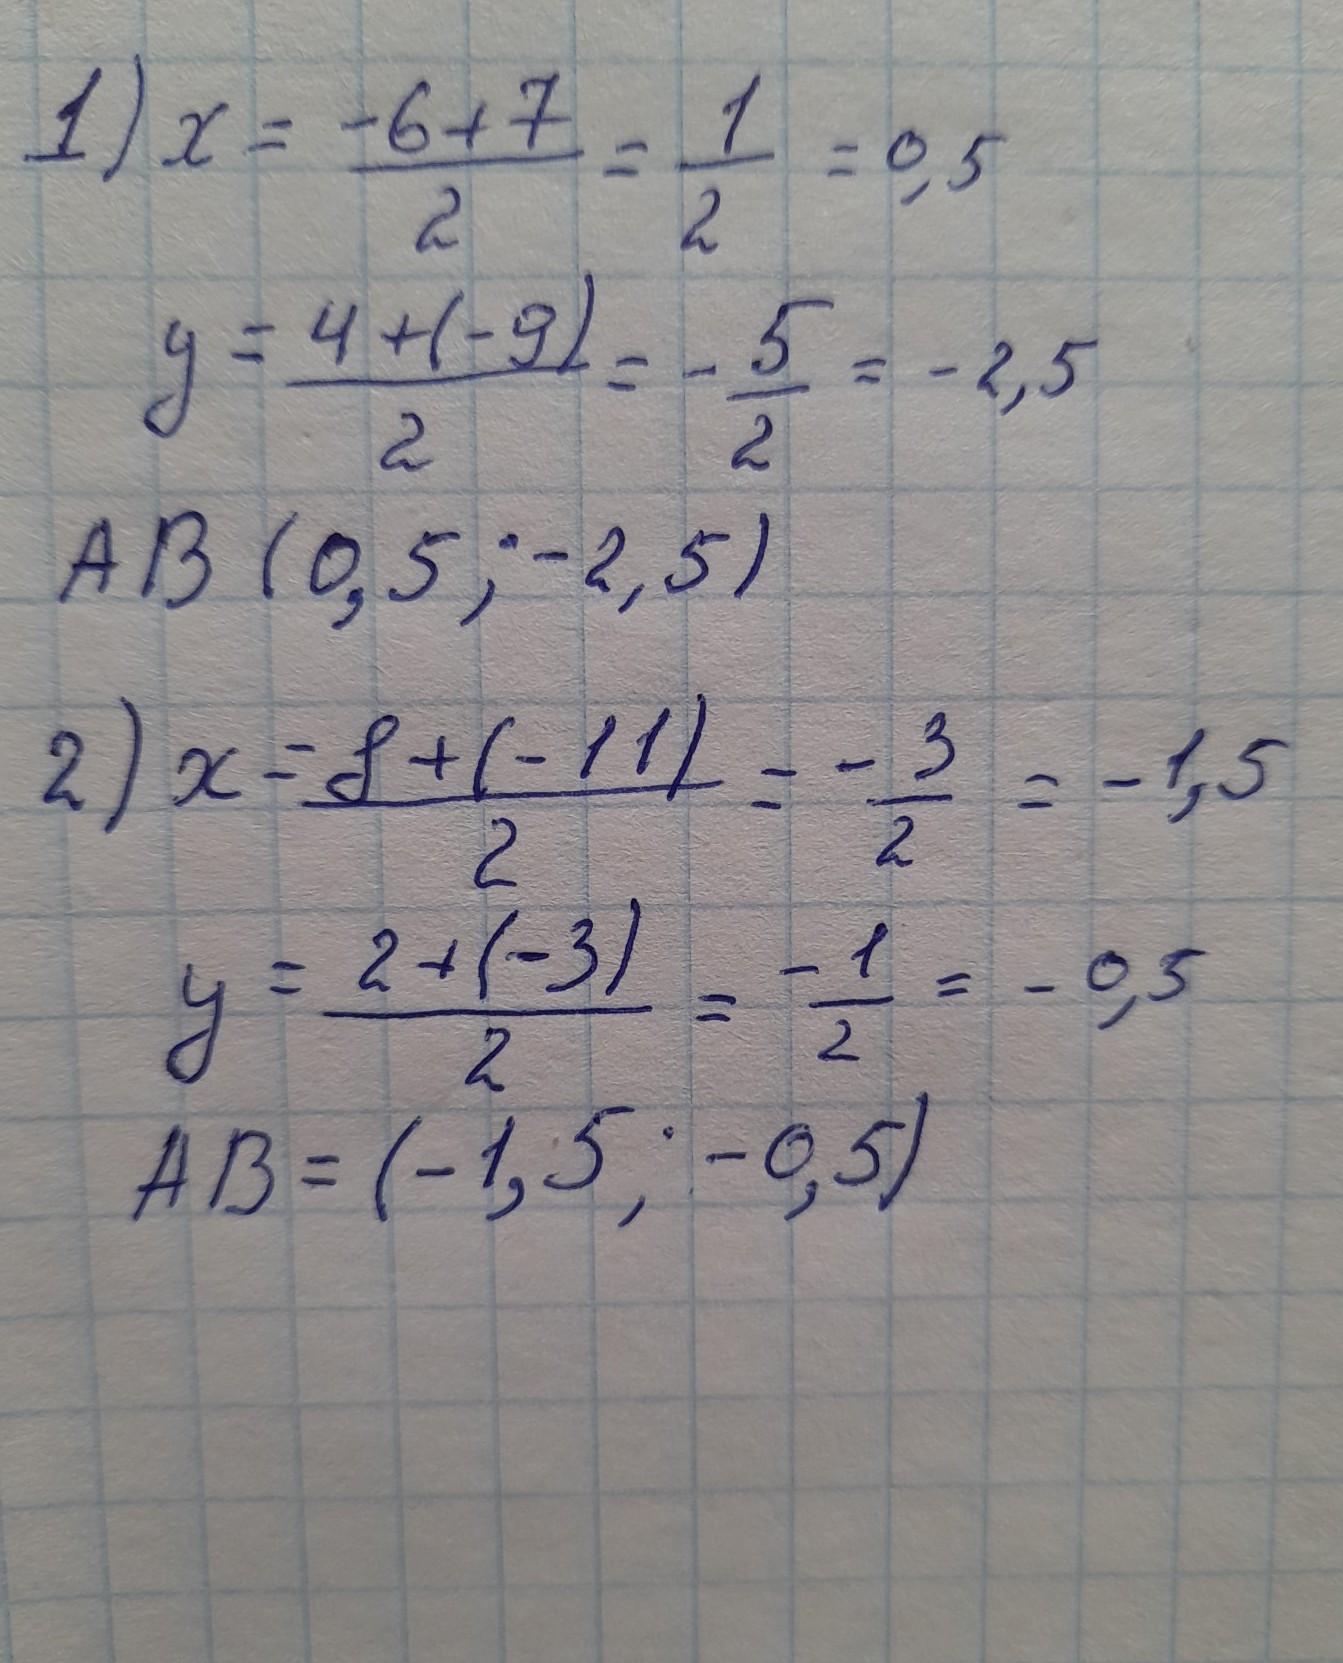 1) x = -6+7/2 = 1/2 = 0,5
y = 4+(-9)/2 = -5/2 = -2,5
AB (0,5 ; -2,5)
2) x = 8+(-11)/2 = -3/2 = -1,5
y = 2+(-3)/2 = -1/2 = -0,5
AB = (-1,5 ; -0,5)